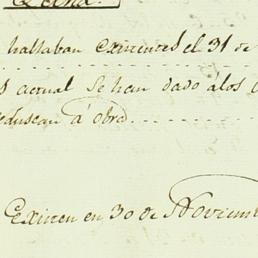 hallaban existentes el 31 de
actual se han dado á los
á obra
Existen en 30 de Noviem